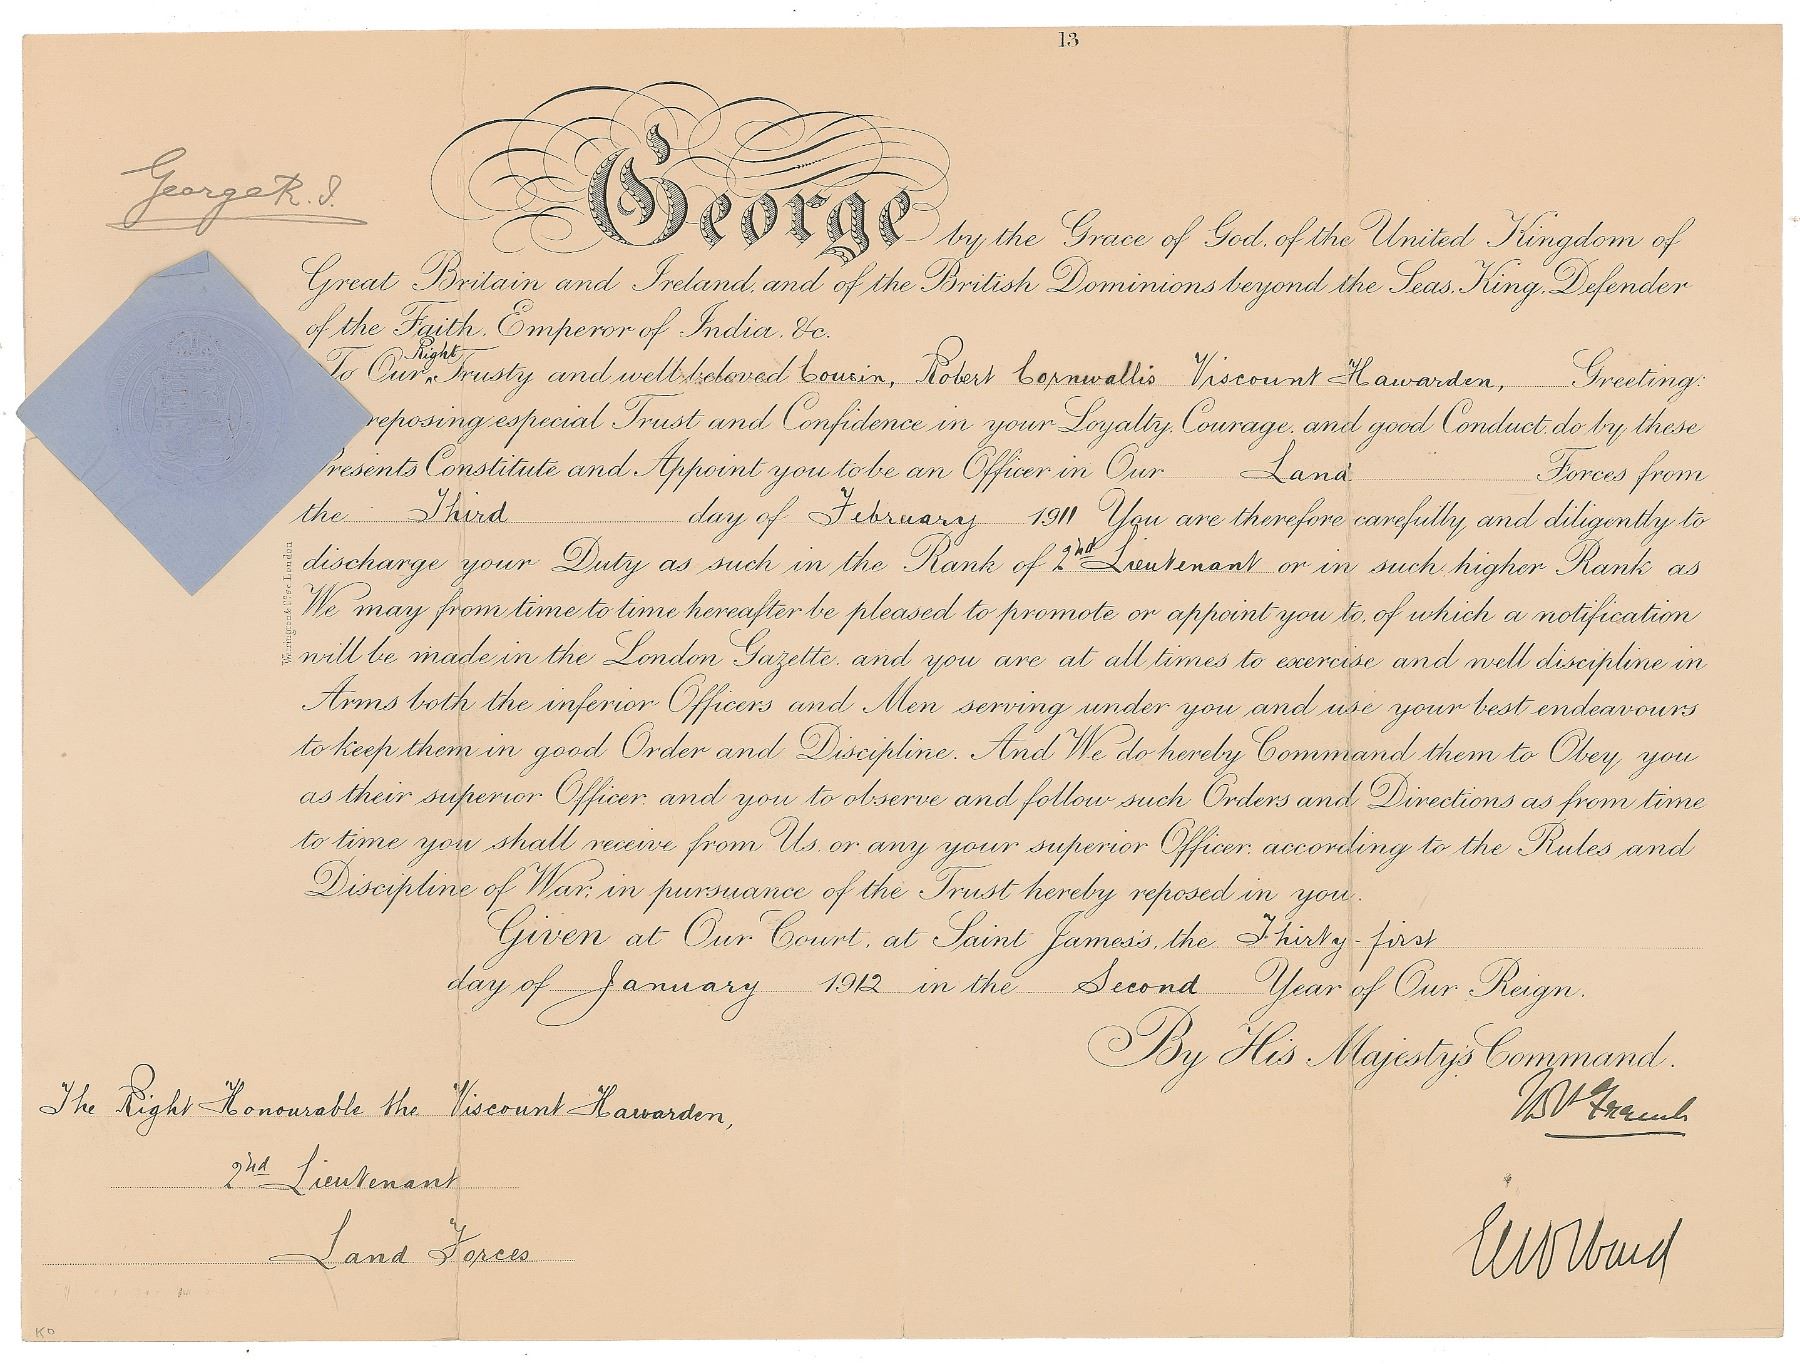 13
George R. I.
George by the Grace of God, of the United Kingdom of
Great Britain and Ireland, and of the British Dominions beyond the Seas, King, Defender
of the Faith, Emperor of India, &c.
To Our Right Trusty and well-beloved Cousin, Robert Cornwallis Viscount Hawarden, Greeting:
reposing especial Trust and Confidence in your Loyalty, Courage, and good Conduct, do by these
Presents Constitute and Appoint you to be an Officer in Our Land Forces from
the Third day of February 1911 You are therefore carefully and diligently to
discharge your Duty as such in the Rank of 2nd Lieutenant or in such higher Rank as
We may from time to time hereafter be pleased to promote or appoint you to, of which a notification
will be made in the London Gazette, and you are at all times to exercise and well discipline in
Arms both the inferior Officers and Men serving under you and use your best endeavours
to keep them in good Order and Discipline. And We do hereby Command them to Obey you
as their superior Officer, and you to observe and follow such Orders and Directions as from time
to time you shall receive from Us, or any your superior Officer, according to the Rules and
Discipline of War, in pursuance of the Trust hereby reposed in you.
Given at Our Court, at Saint James's, the Thirty-first
day of January 1912 in the Second Year of Our Reign.
By His Majesty's Command.
The Right Honourable the Viscount Hawarden,
2nd Lieutenant
Land Forces
London
EWD Ward
KD